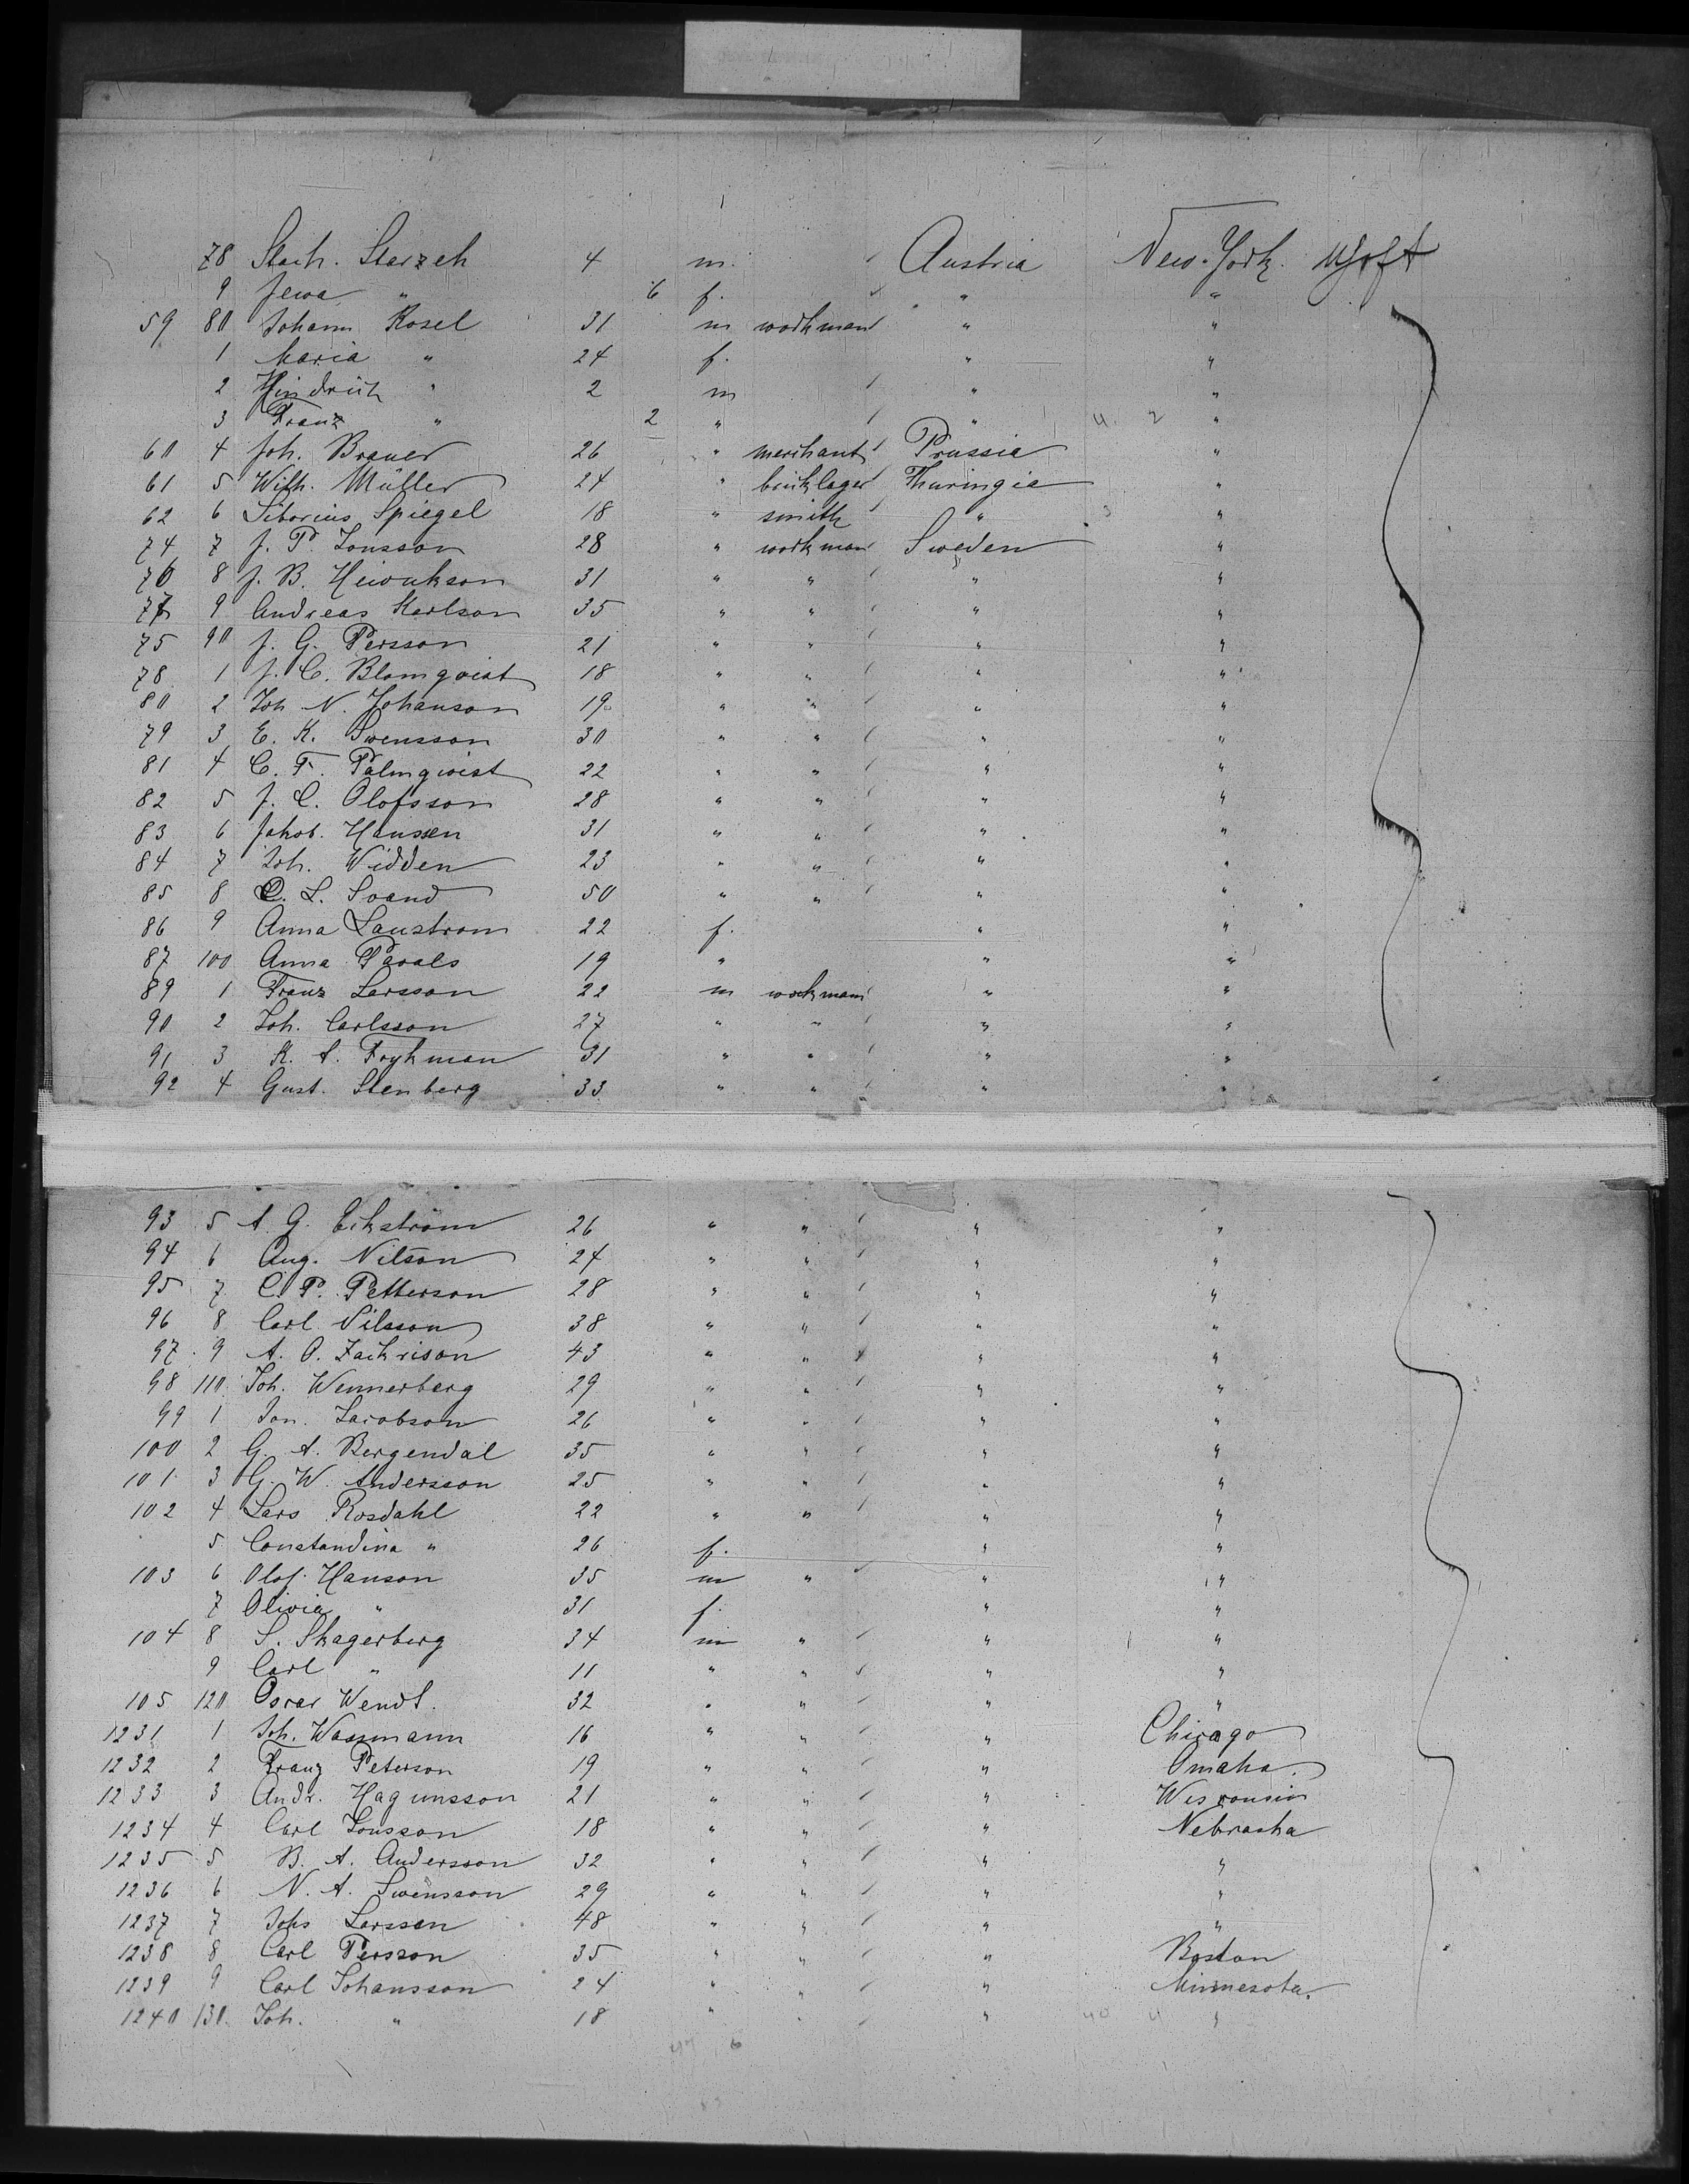 78 Stach. Starzeh 4 m. Austria New-York.
9 Jewa " 6 f. " "
59 80 Johann Kosel 31 m workman " "
1 Maria " 24 f. " "
2 Hindrich " 2 m " "
3 Franz " 2 " " "
60 4 Joh. Brauer 26 " merchant Prussia "
61 5 Wilh. Müller 24 " bricklager Thuringia "
62 6 Liborius Spiegel 18 " smith " "
74 7 J. P. Jonsson 28 " workman Sweden "
76 8 J. B. 31 " " " "
77 9 Andreas Karlson 35 " " " "
75 90 J. G. Persson 21 " " " "
78 1 J. C. Blomqvist 18 " " " "
80 2 Joh N. Johanson 19 " " " "
79 3 E. K. Swensson 30 " " " "
81 4 C. F. Palmqvist 22 " " " "
82 5 J. C. Olofsson 28 " " " "
83 6 Jakob. Hanssen 31 " " " "
84 7 Joh. Widden 23 " " " "
85 8 C. L. Svand 50 " " " "
86 9 Anna Laustrom 22 f. " "
87 100 Anna Parals 19 " " "
89 1 Franz Larsson 22 m workman " "
90 2 Joh. Carlsson 27 " " " "
91 3 K. A. Frykman 31 " " " "
92 4 Gust. Stenberg 33 " " " "
93 5 A. G. Eckström 26 " " " "
94 6 Aug. Nilson 24 " " " "
95 7 C. P. Petterson 28 " " " "
96 8 Carl Nilsson 38 " " " "
97 9 A. O. Zackrison 43 " " " "
98 110 Joh. Wennerberg 29 " " " "
99 1 Jon. Jacobson 26 " " " "
100 2 G. A. Bergendal 35 " " " "
101 3 G. W. Andersson 25 " " " "
102 4 Lars Rosdahl 22 " " " "
5 Constandina " 26 f. " "
103 6 Olof Hanson 35 m " " "
7 Olivia " 31 f. " "
104 8 S. Skagerberg 34 m " " "
9 Carl " 11 " " " "
105 120 Oscar Wendt. 32 " " " "
1231 1 Joh. Wassmann 16 " " " Chicago
1232 2 Franz Peterson 19 " " " Omaha.
1233 3 Andr. Hagunsson 21 " " " Wisconsin
1234 4 Carl Jonsson 18 " " " Nebraska
1235 5 B. A. Andersson 32 " " " "
1236 6 N. A. Swensson 29 " " " "
1237 7 Johs Larssen 48 " " " "
1238 8 Carl Persson 35 " " " Boston
1239 9 Carl Johansson 24 " " " Minnesota.
1240 130. Joh. " 18 " " " "